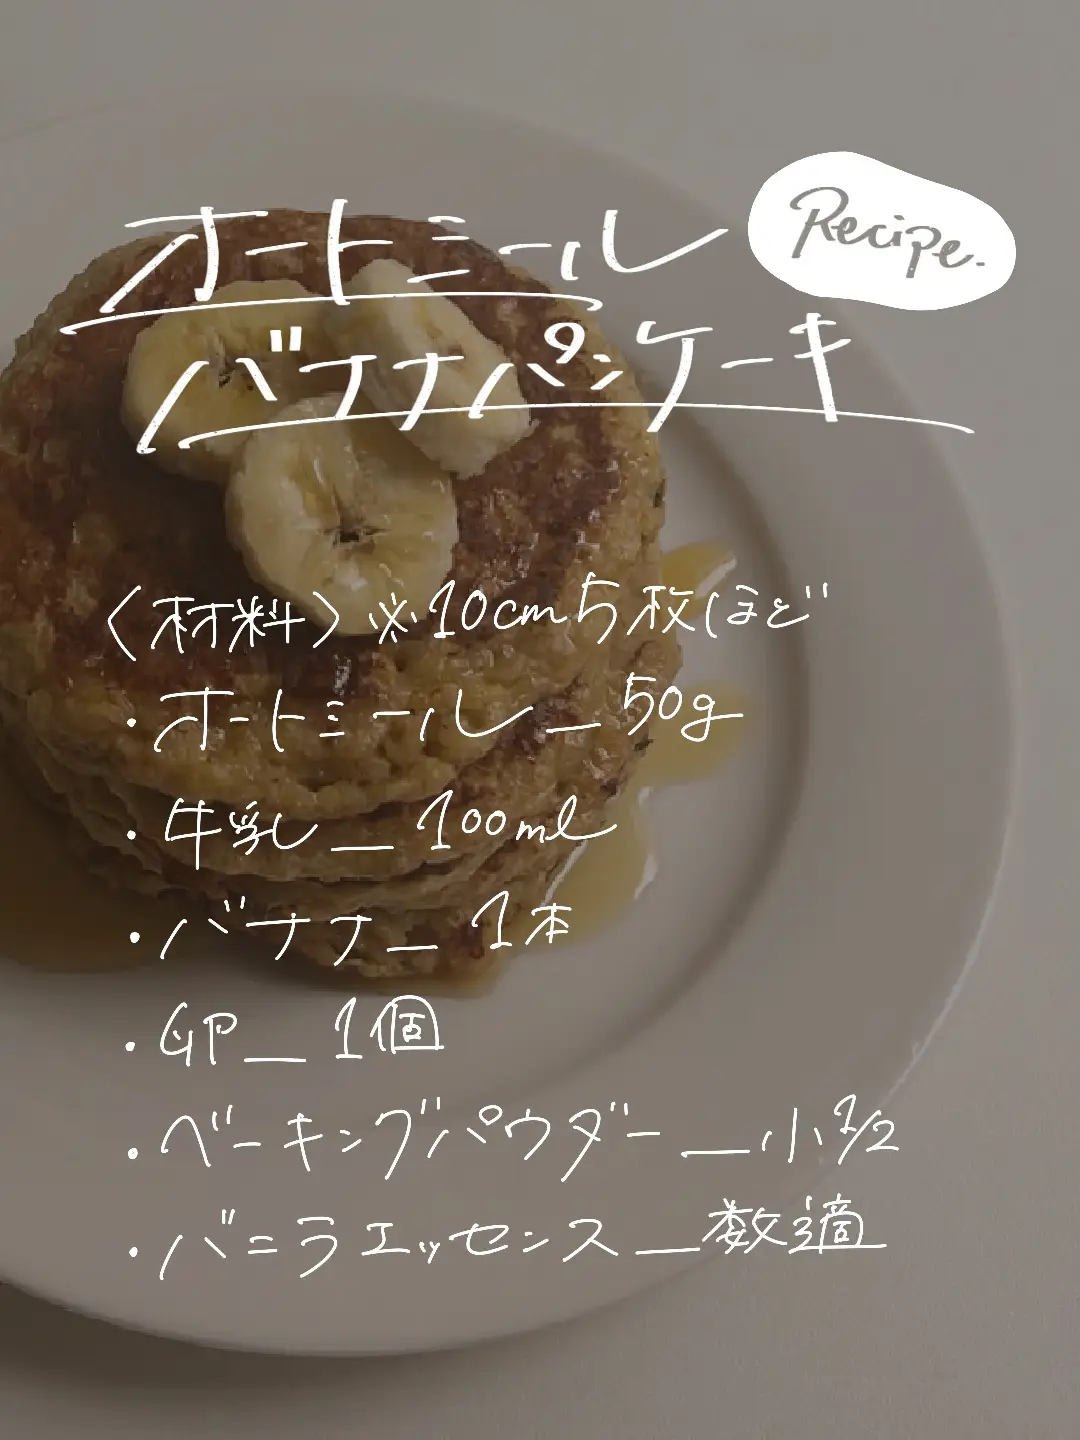 オートミール
Recipe.
バナナパンケーキ
〈材料〉※10cm5枚ほど
・オートミール_50g
・牛乳_100ml
・バナナ_1本
・GP_1個
・ベーキングパウダー_小1/2
・バニラエッセンス_数適